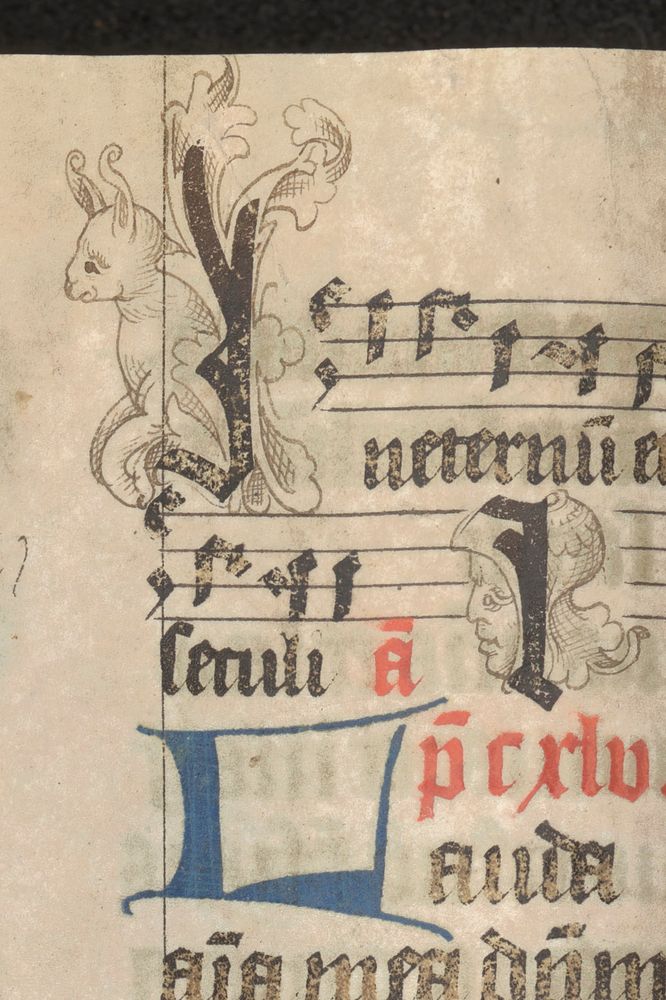 In eternū e
seculi ā I
p̄ cxlv.
Lauda
aīa mea dn̄m